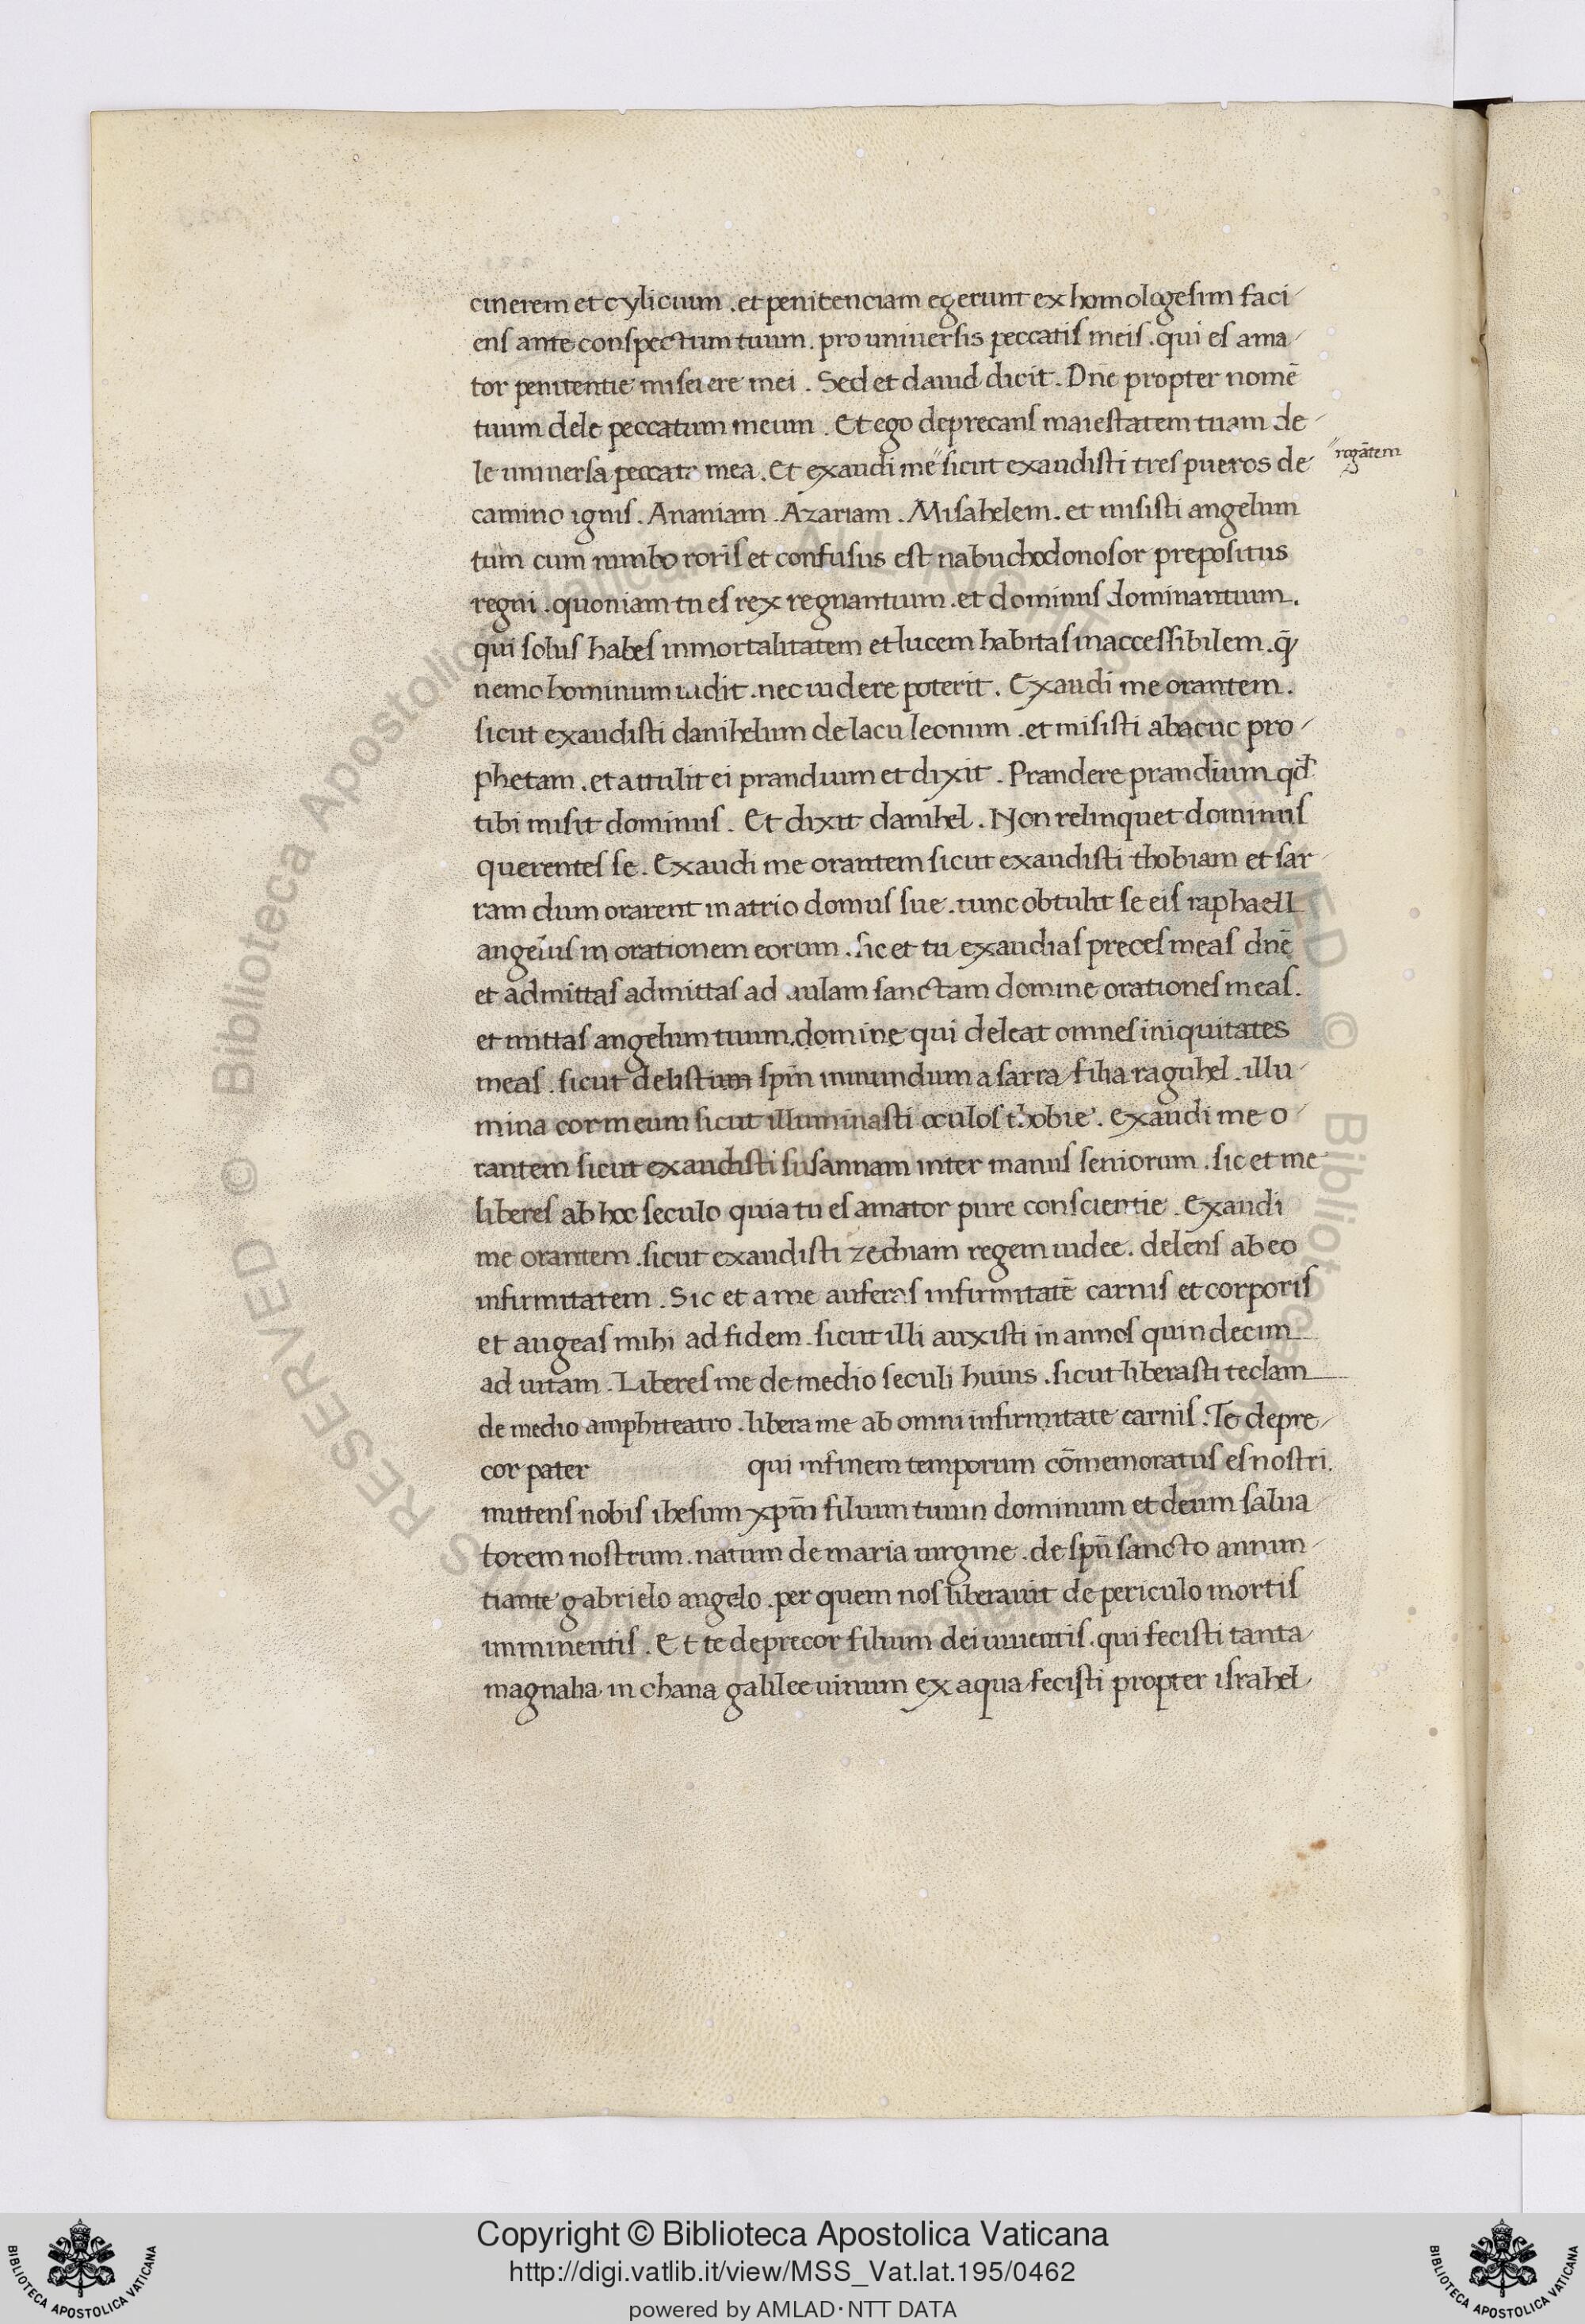 cinerem et cylicium . et penitenciam egerunt exhomologesim faci-
ens ante conspectum tuum . pro universis peccatis meis . qui es ama-
tor penitentie miserere mei . Sed et dauid dicit . Dne propter nomē
tuum dele peccatum meum . Et ego deprecans maiestatem tuam de-
le uniuersa peccata mea . Et exaudi me" sicut exaudisti tres pueros de
"rogātem
camino ignis . Ananiam . Azariam . Misahelem . et misisti angelum
tuum cum nimbo roris et confusus est nabuchodonosor prepositus
regni . quoniam tu es rex regnantium . et dominus dominantium .
qui solus habes inmortalitatem et lucem habitas inaccessibilem . q̄
nemo hominum uidit . nec uidere poterit . Exaudi me orantem .
sicut exaudisti danihelum de lacu leonum . et misisti abacuc pro-
phetam . et attulit ei prandium et dixit . Prandere prandium qd
tibi misit dominus . Et dixit danihel . Non relinquet dominus
querentes se . Exaudi me orantem sicut exaudisti thobiam et sar-
ram dum orarent in atrio domus sue . tunc obtulit se eis raphaell
angelus in orationem eorum . sic et tu exaudias preces meas dnē
et admittas admittas ad aulam sanctam domine orationes meas .
et mittas angelum tuum . domine qui deleat omnes iniquitates
meas . sicut delistium spm̄ inmundum a sarra filia raguhel . illu-
mina cor meum sicut illuminasti oculos thobie . exaudi me o-
rantem sicut exaudisti susannam inter manus seniorum . sic et me
liberes ab hoc seculo quia tu es amator pure conscientie . Exaudi
me orantem . sicut exaudisti zechiam regem iudee . delens ab eo
infirmitatem . Sic et a me auferas infirmitatē carnis et corporis
et augeas mihi ad fidem . sicut illi auxisti in annos quindecim
ad uitam . Liberes me de medio seculi huius . sicut liberasti teclam
de medio amphiteatro . libera me ab omni infirmitate carnis . Te depre-
cor pater qui in finem temporum cōmemoratus es nostri .
mittens nobis ihesum xpm̄ filium tuum dominum et deum salua-
torem nostrum . natum de maria uirgine . de spū sancto annun-
tiante gabrielo angelo . per quem nos liberauit de periculo mortis
imminentis . Et te deprecor filium dei uiuentis . qui fecisti tanta
magnalia in chana galilee uinum ex aqua fecisti propter israhel
Copyright © Biblioteca Apostolica Vaticana
http://digi.vatlib.it/view/MSS_Vat.lat.195/0462
powered by AMLAD · NTT DATA